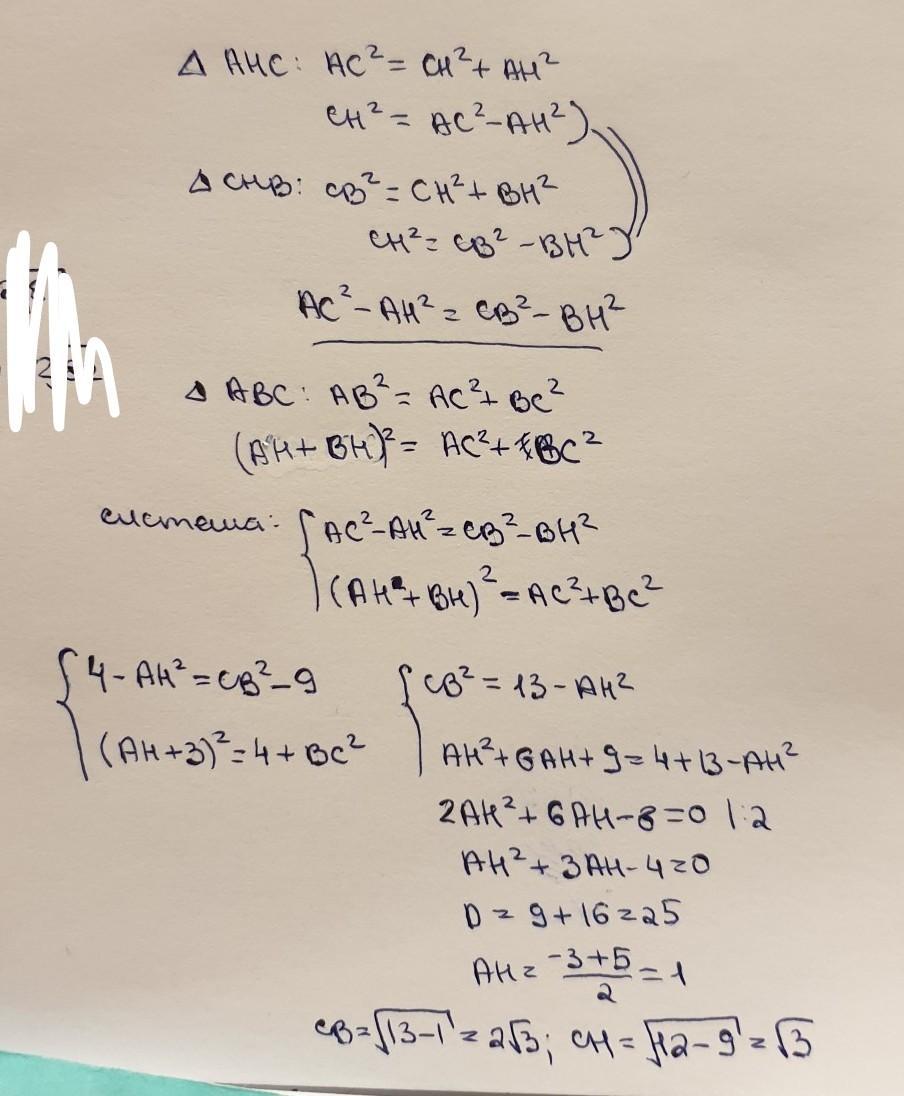 Δ AHC: AC² = CH² + AH²
CH² = AC² - AH²
Δ CHB: CB² = CH² + BH²
CH² = CB² - BH²
AC² - AH² = CB² - BH²
Δ ABC: AB² = AC² + BC²
(AH + BH)² = AC² + BC²
система: { AC² - AH² = CB² - BH²
(AH + BH)² = AC² + BC²
{ 4 - AH² = CB² - 9
(AH + 3)² = 4 + BC²
{ CB² = 13 - AH²
AH² + 6AH + 9 = 4 + 13 - AH²
2AH² + 6AH - 8 = 0 |:2
AH² + 3AH - 4 = 0
D = 9 + 16 = 25
AH = (-3+5)/2 = 1
CB = √(13-1) = 2√3; CH = √(12-9) = √3